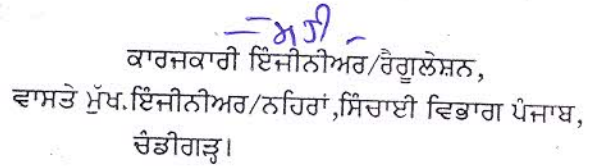 ਕਾਰਜਕਾਰੀ ਇੰਜੀਨੀਅਰ/ਰੈਗੂਲੇਸ਼ਨ,
ਵਾਸਤੇ ਮੁੱਖ.ਇੰਜੀਨੀਅਰ/ਨਹਿਰਾਂ,ਸਿੰਚਾਈ ਵਿਭਾਗ ਪੰਜਾਬ,
ਚੰਡੀਗੜ੍ਹ।